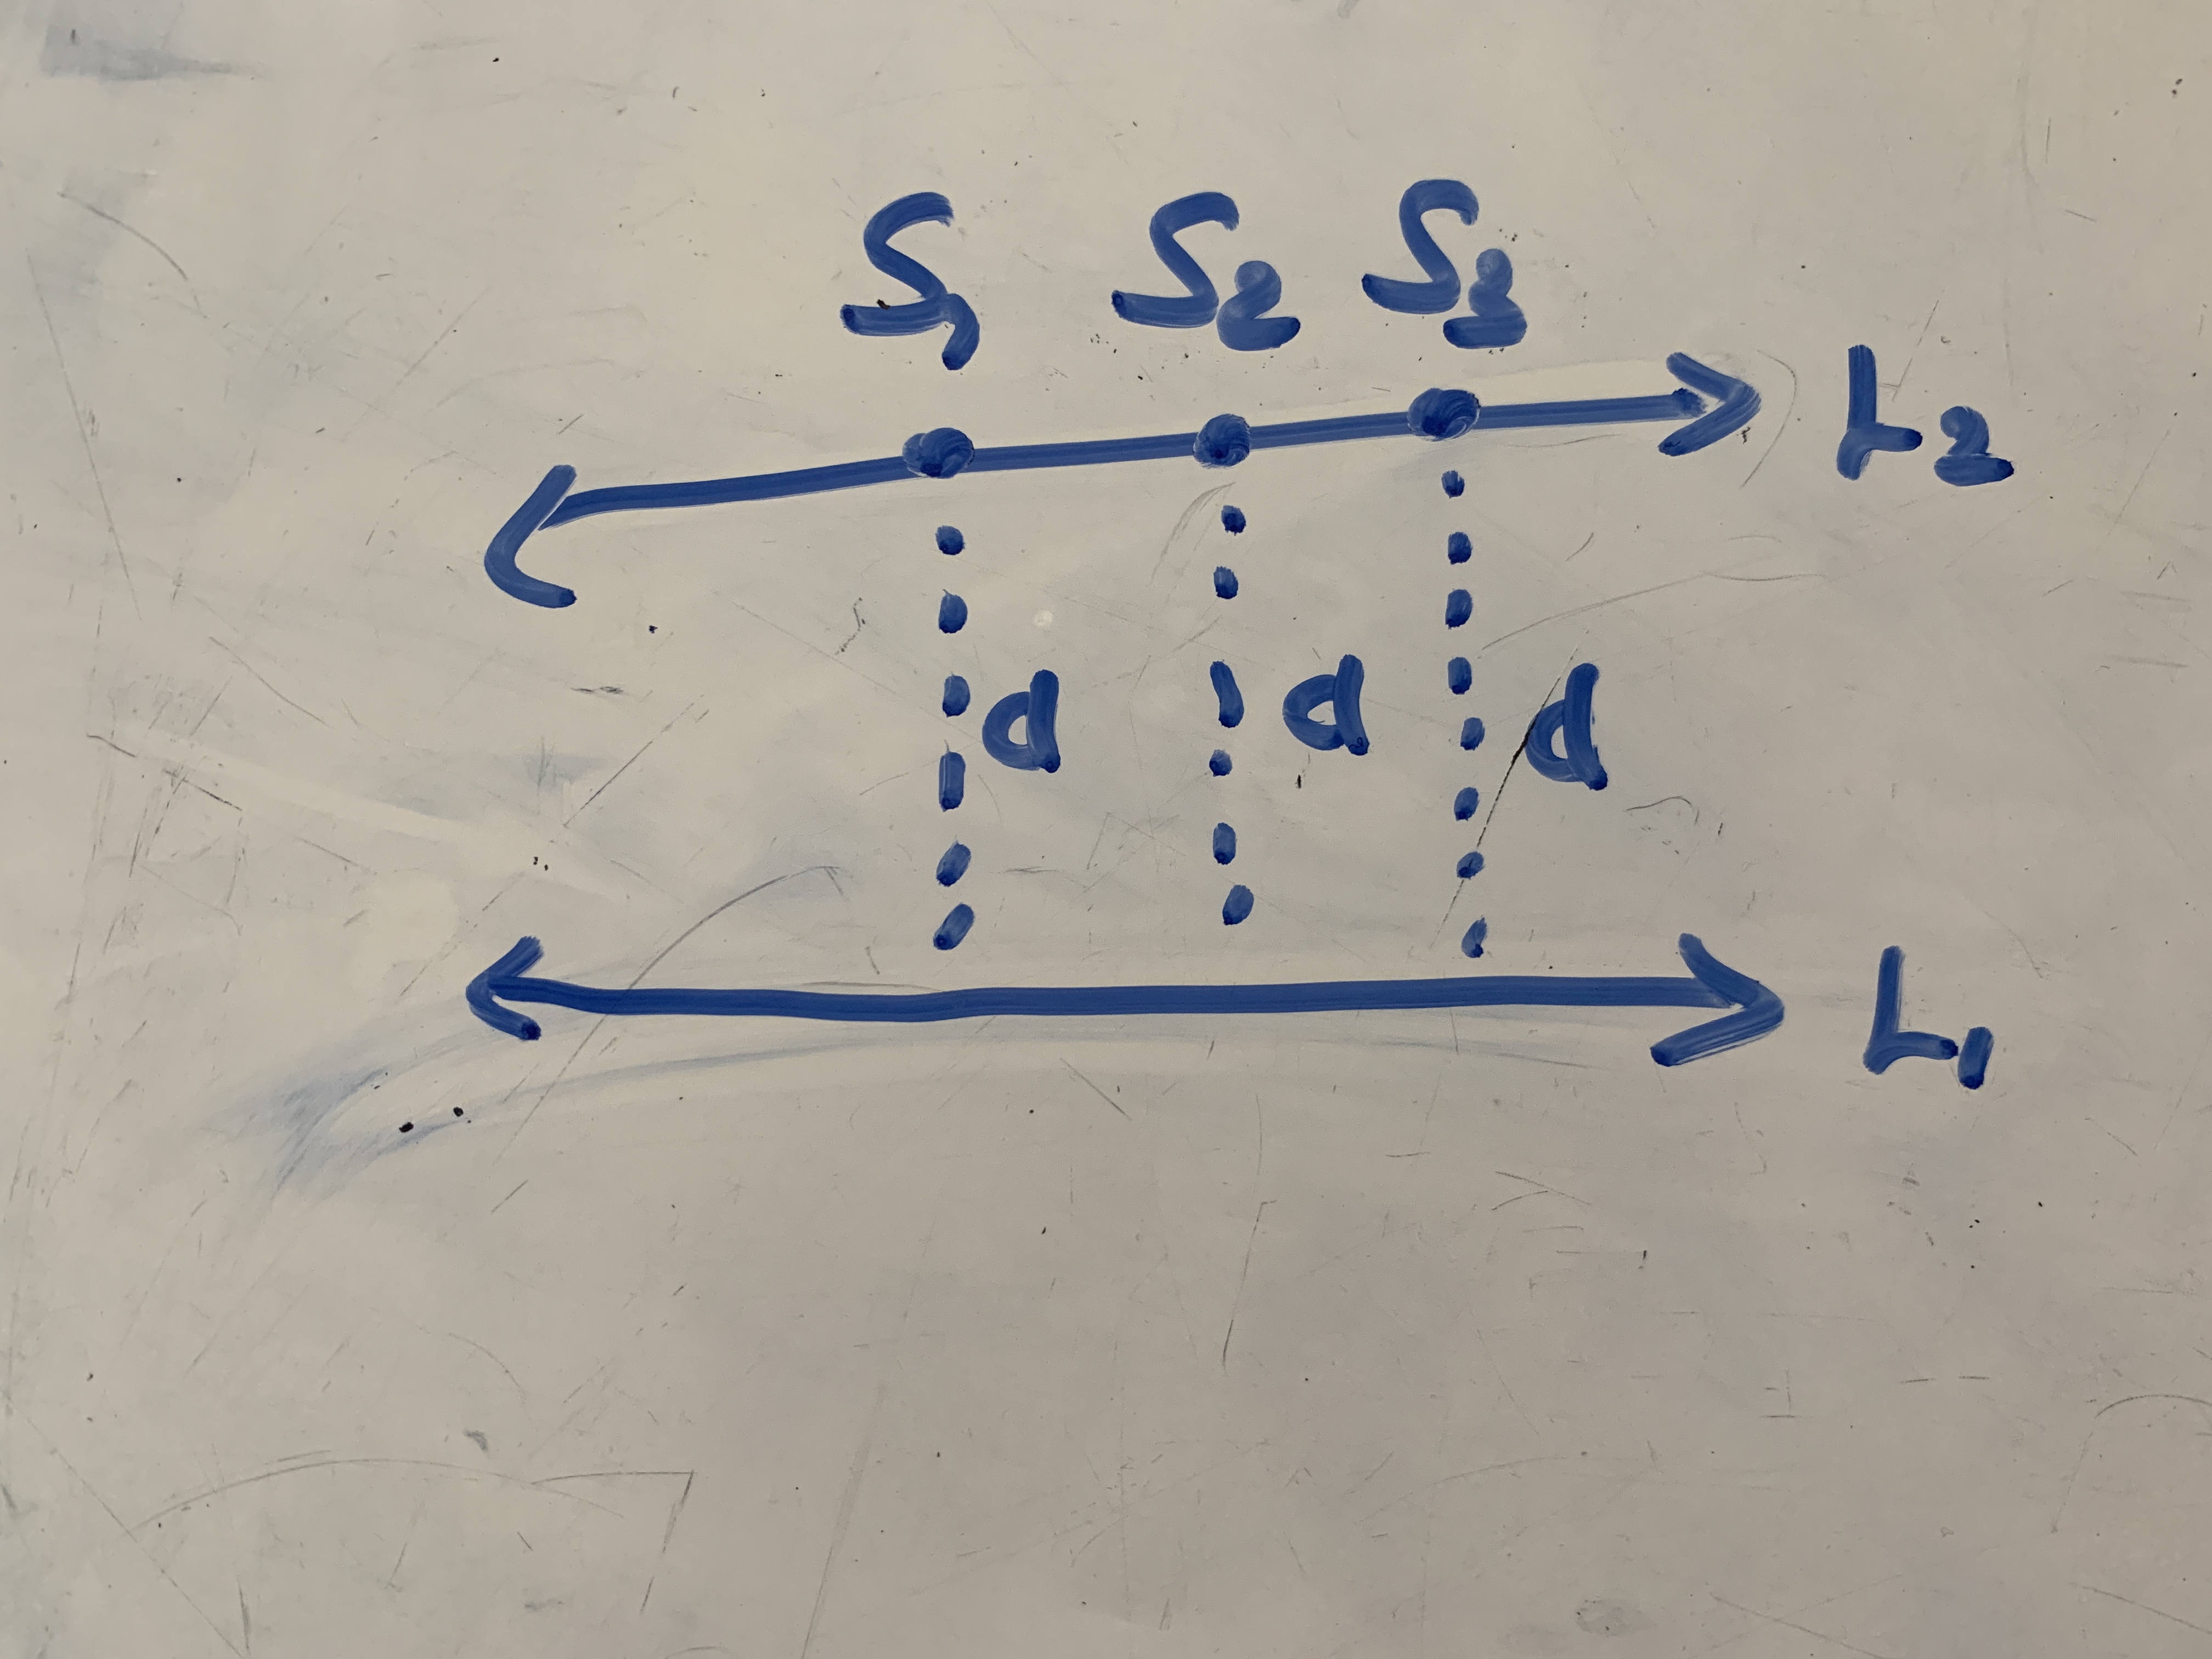 S₁ S₂ S₃
L₂
d d d
L₁